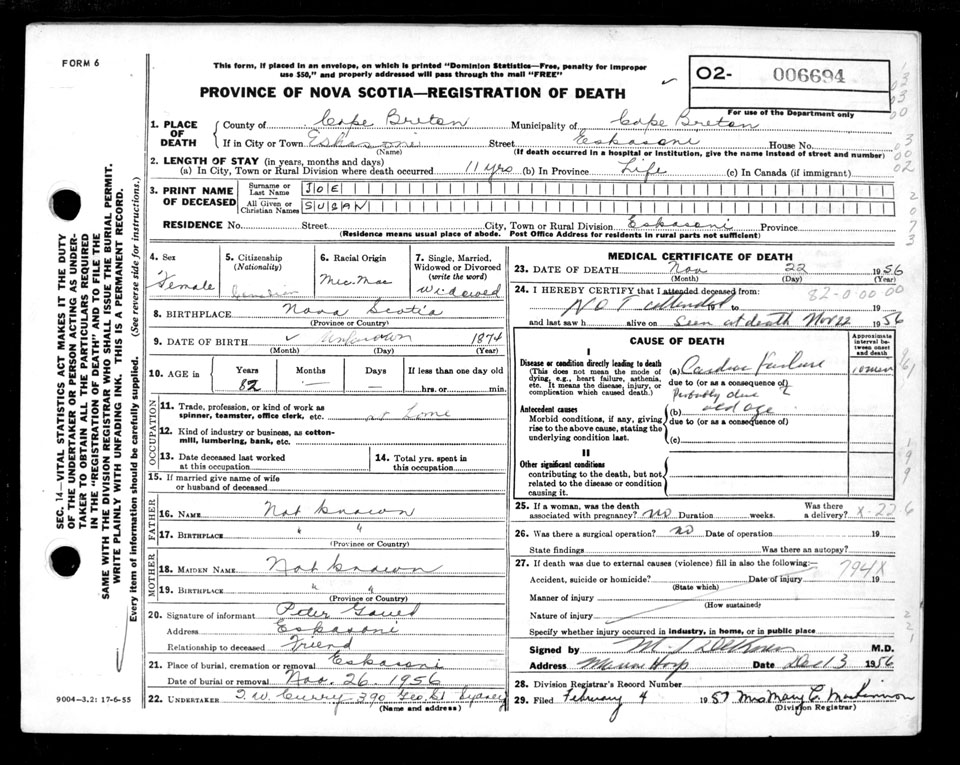 FORM 6
This form, if placed in an envelope, on which is printed "Dominion Statistics—Free, penalty for improper
use $50," and properly addressed will pass through the mail "FREE"
02- 006694
PROVINCE OF NOVA SCOTIA—REGISTRATION OF DEATH
For use of the Department only
1. PLACE OF DEATH
County of Cape Breton Municipality of Cape Breton
If in City or Town Eskasoni Street Eskasoni House No.
(Name) (If death occurred in a hospital or institution, give the name instead of street and number)
2. LENGTH OF STAY (in years, months and days)
(a) In City, Town or Rural Division where death occurred 11 yrs (b) In Province Life (c) In Canada (if immigrant)
3. PRINT NAME OF DECEASED
Surname or Last Name JOE
All Given or Christian Names SUSAN
RESIDENCE No. Street City, Town or Rural Division Eskasoni Province
(Residence means usual place of abode. Post Office Address for residents in rural parts not sufficient)
4. Sex
Female
5. Citizenship
(Nationality)
Canadian
6. Racial Origin
Mic. Mac
7. Single, Married,
Widowed or Divorced
(write the word)
Widowed
8. BIRTHPLACE Nova Scotia
(Province or Country)
9. DATE OF BIRTH Unknown 1874
(Month) (Day) (Year)
10. AGE in
Years Months Days If less than one day old
82 — — hrs. or min.
OCCUPATION
11. Trade, profession, or kind of work as
spinner, teamster, office clerk, etc. at home
12. Kind of industry or business, as cotton-
mill, lumbering, bank, etc.
13. Date deceased last worked
at this occupation
14. Total yrs. spent in
this occupation
15. If married give name of wife
or husband of deceased
FATHER
16. NAME Not known
17. BIRTHPLACE " "
(Province or Country)
MOTHER
18. MAIDEN NAME Not known
19. BIRTHPLACE " "
(Province or Country)
20. Signature of informant Peter
Address Eskasoni
Relationship to deceased Friend
21. Place of burial, cremation or removal Eskasoni
Date of burial or removal Nov. 26 1956
22. UNDERTAKER T. W. Curry 390 Geo. St Sydney
(Name and address)
MEDICAL CERTIFICATE OF DEATH
23. DATE OF DEATH Nov 22 1956
(Month) (Day) (Year)
24. I HEREBY CERTIFY that I attended deceased from: 82-0 00 00
NOT attended 19 to 19
and last saw h alive on Seen at death Nov 22 1956
CAUSE OF DEATH
Approximate
interval be-
tween onset
and death
I
Disease or condition directly leading to death
(This does not mean the mode of
dying, e.g., heart failure, asthenia,
etc. It means the disease, injury, or
complication which caused death.)
(a) Cardiac Failure 10 min
due to (or as a consequence of)
Probably due
Antecedent causes
Morbid conditions, if any, giving
rise to the above cause, stating the
underlying condition last.
(b) old age
due to (or as a consequence of)
(c)
II
Other significant conditions
contributing to the death, but not
related to the disease or condition
causing it.
25. If a woman, was the death
associated with pregnancy? no Duration weeks. Was there
a delivery? X-22
26. Was there a surgical operation? no Date of operation 19
State findings Was there an autopsy?
27. If death was due to external causes (violence) fill in also the following:— 794X
Accident, suicide or homicide? Date of injury 19
(State which)
Manner of injury
(How sustained)
Nature of injury
Specify whether injury occurred in industry, in home, or in public place
Signed by M.D.
Address Date Dec 13 1956
28. Division Registrar's Record Number
29. Filed February 4 1957 Mrs Mary C. MacKinnon
(Division Registrar)
SEC. 14—VITAL STATISTICS ACT MAKES IT THE DUTY
OF THE UNDERTAKER OR PERSON ACTING AS UNDER-
TAKER TO OBTAIN ALL THE PARTICULARS REQUIRED
IN THE "REGISTRATION OF DEATH" AND TO FILE THE
SAME WITH THE DIVISION REGISTRAR WHO SHALL ISSUE THE BURIAL PERMIT.
WRITE PLAINLY WITH UNFADING INK. THIS IS A PERMANENT RECORD.
Every item of information should be carefully supplied. (See reverse side for instructions.)
9004-3.2: 17-6-55